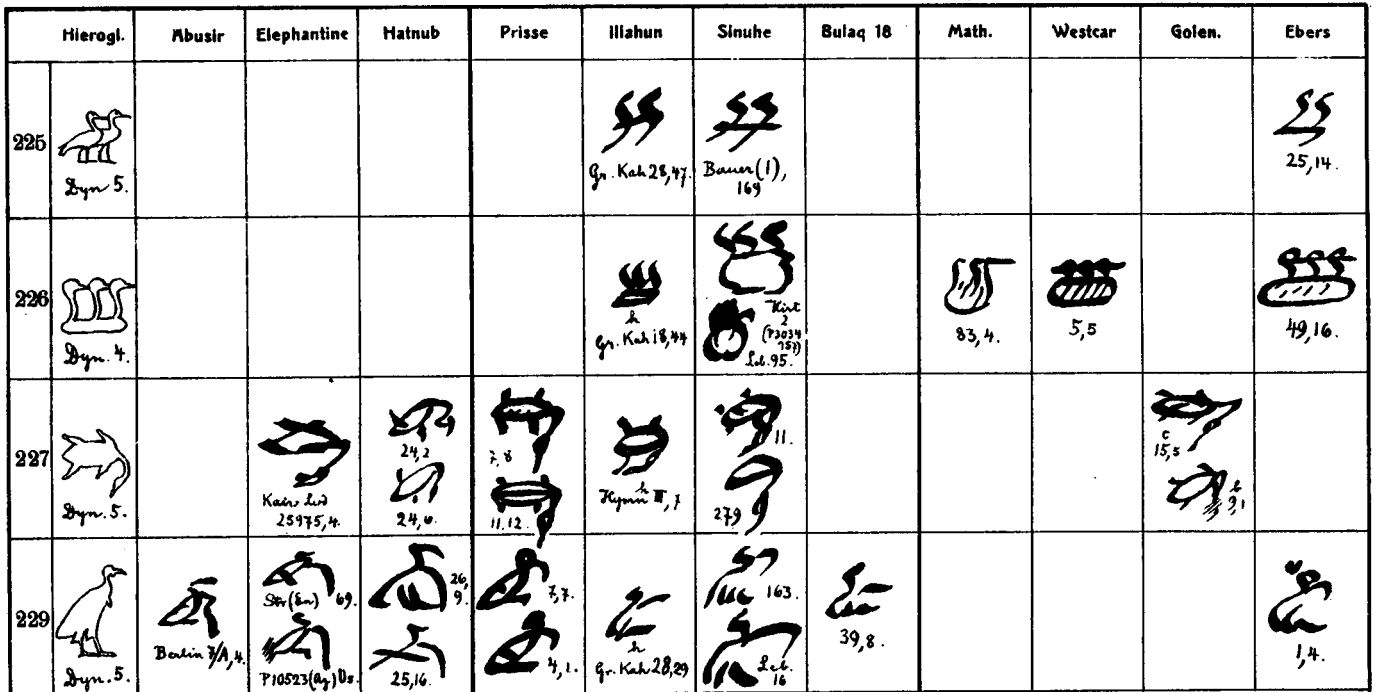 Hierogl. Abusir Elephantine Hatnub Prisse Illahun Sinuhe Bulaq 18 Math. Westcar Golen. Ebers
225
Dyn 5.
Gr. Kah 28,47.
Bauer (1),
169
25,14.
226
Dyn. 4.
h
Gr. Kah 18,44
Hirt
2
Leb. 95.
83,4.
5,5
49,16.
227
Dyn. 5.
25975,4.
24,2
24,6.
7,8
11.12.
h
Hymn III,7
11.
279
c
15,5
b
9,1
229
Dyn. 5.
69.
P10523
26,
9.
25,16.
7,7.
4,1.
h
Gr. Kah 28,29
163.
Leb.
16
39,8.
1,4.